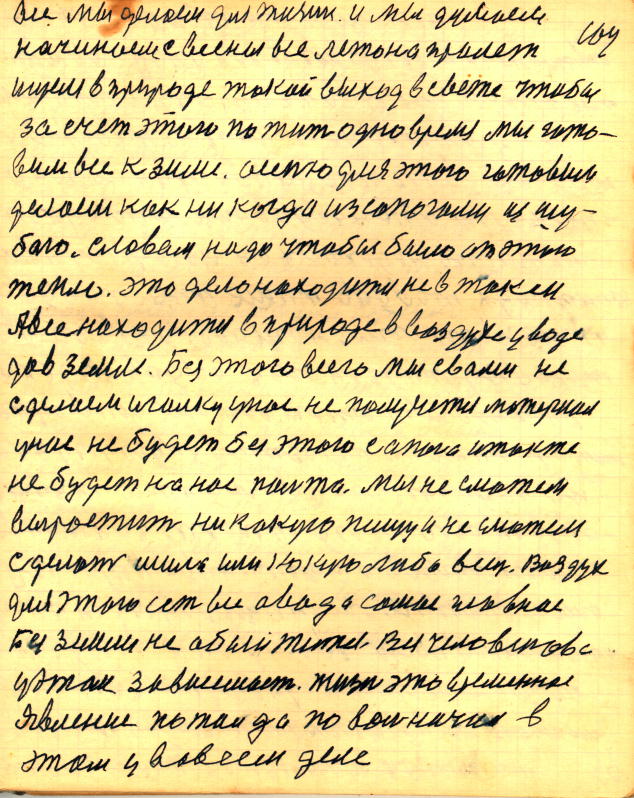 все мы делаем для жизни. и мы думаем
104
начиноем свесны все лето напролет
ищем в природе такой выход в свете чтобы
за счет этого пожит одно время мы гото-
вим все к зиме. осенью для этого готовим
делоем как никогда из сапогами и шу-
бого. словам надо чтобы было от этого
тепло. это дело находится не в таком
А все находится в природе в воздухе у воде
да в земле. Без этого всего мы свами не
сделаем иголку унас не получется материал
унас не будет без этого сапога и также
не будет на нас палто. мы не сможем
выростит никокую пищу и не сможем
сделат шила или кокую либо вещ. Воздух
для этого ест все а вода самое главное
Без земли не
у этом зависимост. жизн это временное
явление по
этом у во всем деле